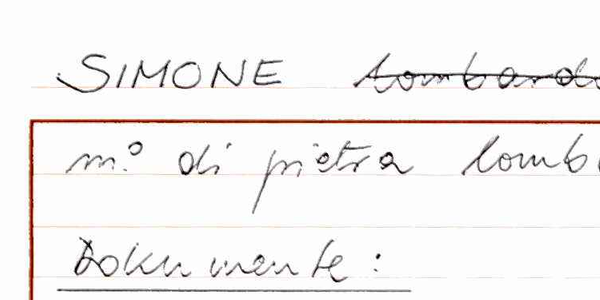 SIMONE lombardo
m.° di pietra lomb
Dokumente: